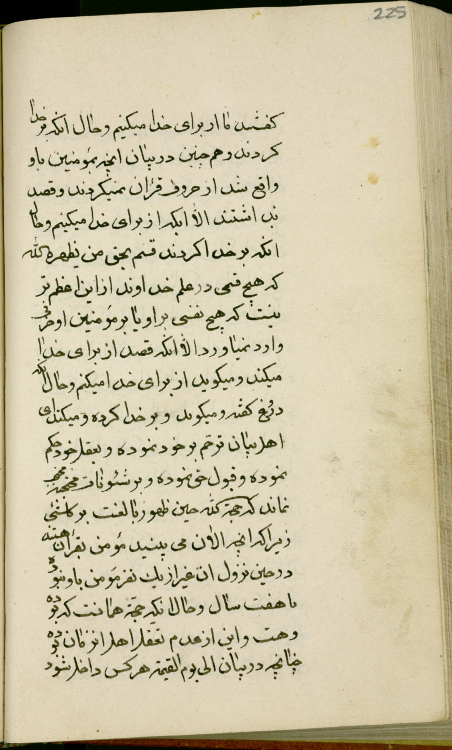 225
گفتند ما از برای خدا میکنیم و حال انکه بر خدا
کردند و هم چنین در بیان انچه بمؤمنین باو
واقع شد از حروف قران نمیکردند و قصد
نداشتند الا انکه از برای خدا میکنیم و حال
انکه بر خدا کردند قسم بحق من یظهره الله
که هیچ قسمی در علم خداوند از این اعظم تر
نیست که هیچ نفسی بر او یا بر مؤمنین او حزنی
وارد نمیاورد الا انکه قصد از برای خدا
میکند و میکوید از برای خدا میکنم و حال انکه
دروغ کفته و میکوید و بر خدا کرده و میکند ای
اهل بیان ترحم بر خود نموده و بعقل خود حکم
نموده و قول حق نموده و بر شئونات محتجب
نماند که حجة الله حین ظهور بالغست بر کلشئ
زیرا که انچه الان می بینید مؤمن بقران هستند
در حین نزول ان غیر از یک نفر مؤمن باو نبوده
تا هفت سال و حال انکه حجة همانست که بوده
و هست و این از عدم تعقل اهل انزمان بوده
چنانچه در بیان الی یوم القیمة هر کس داخل شود